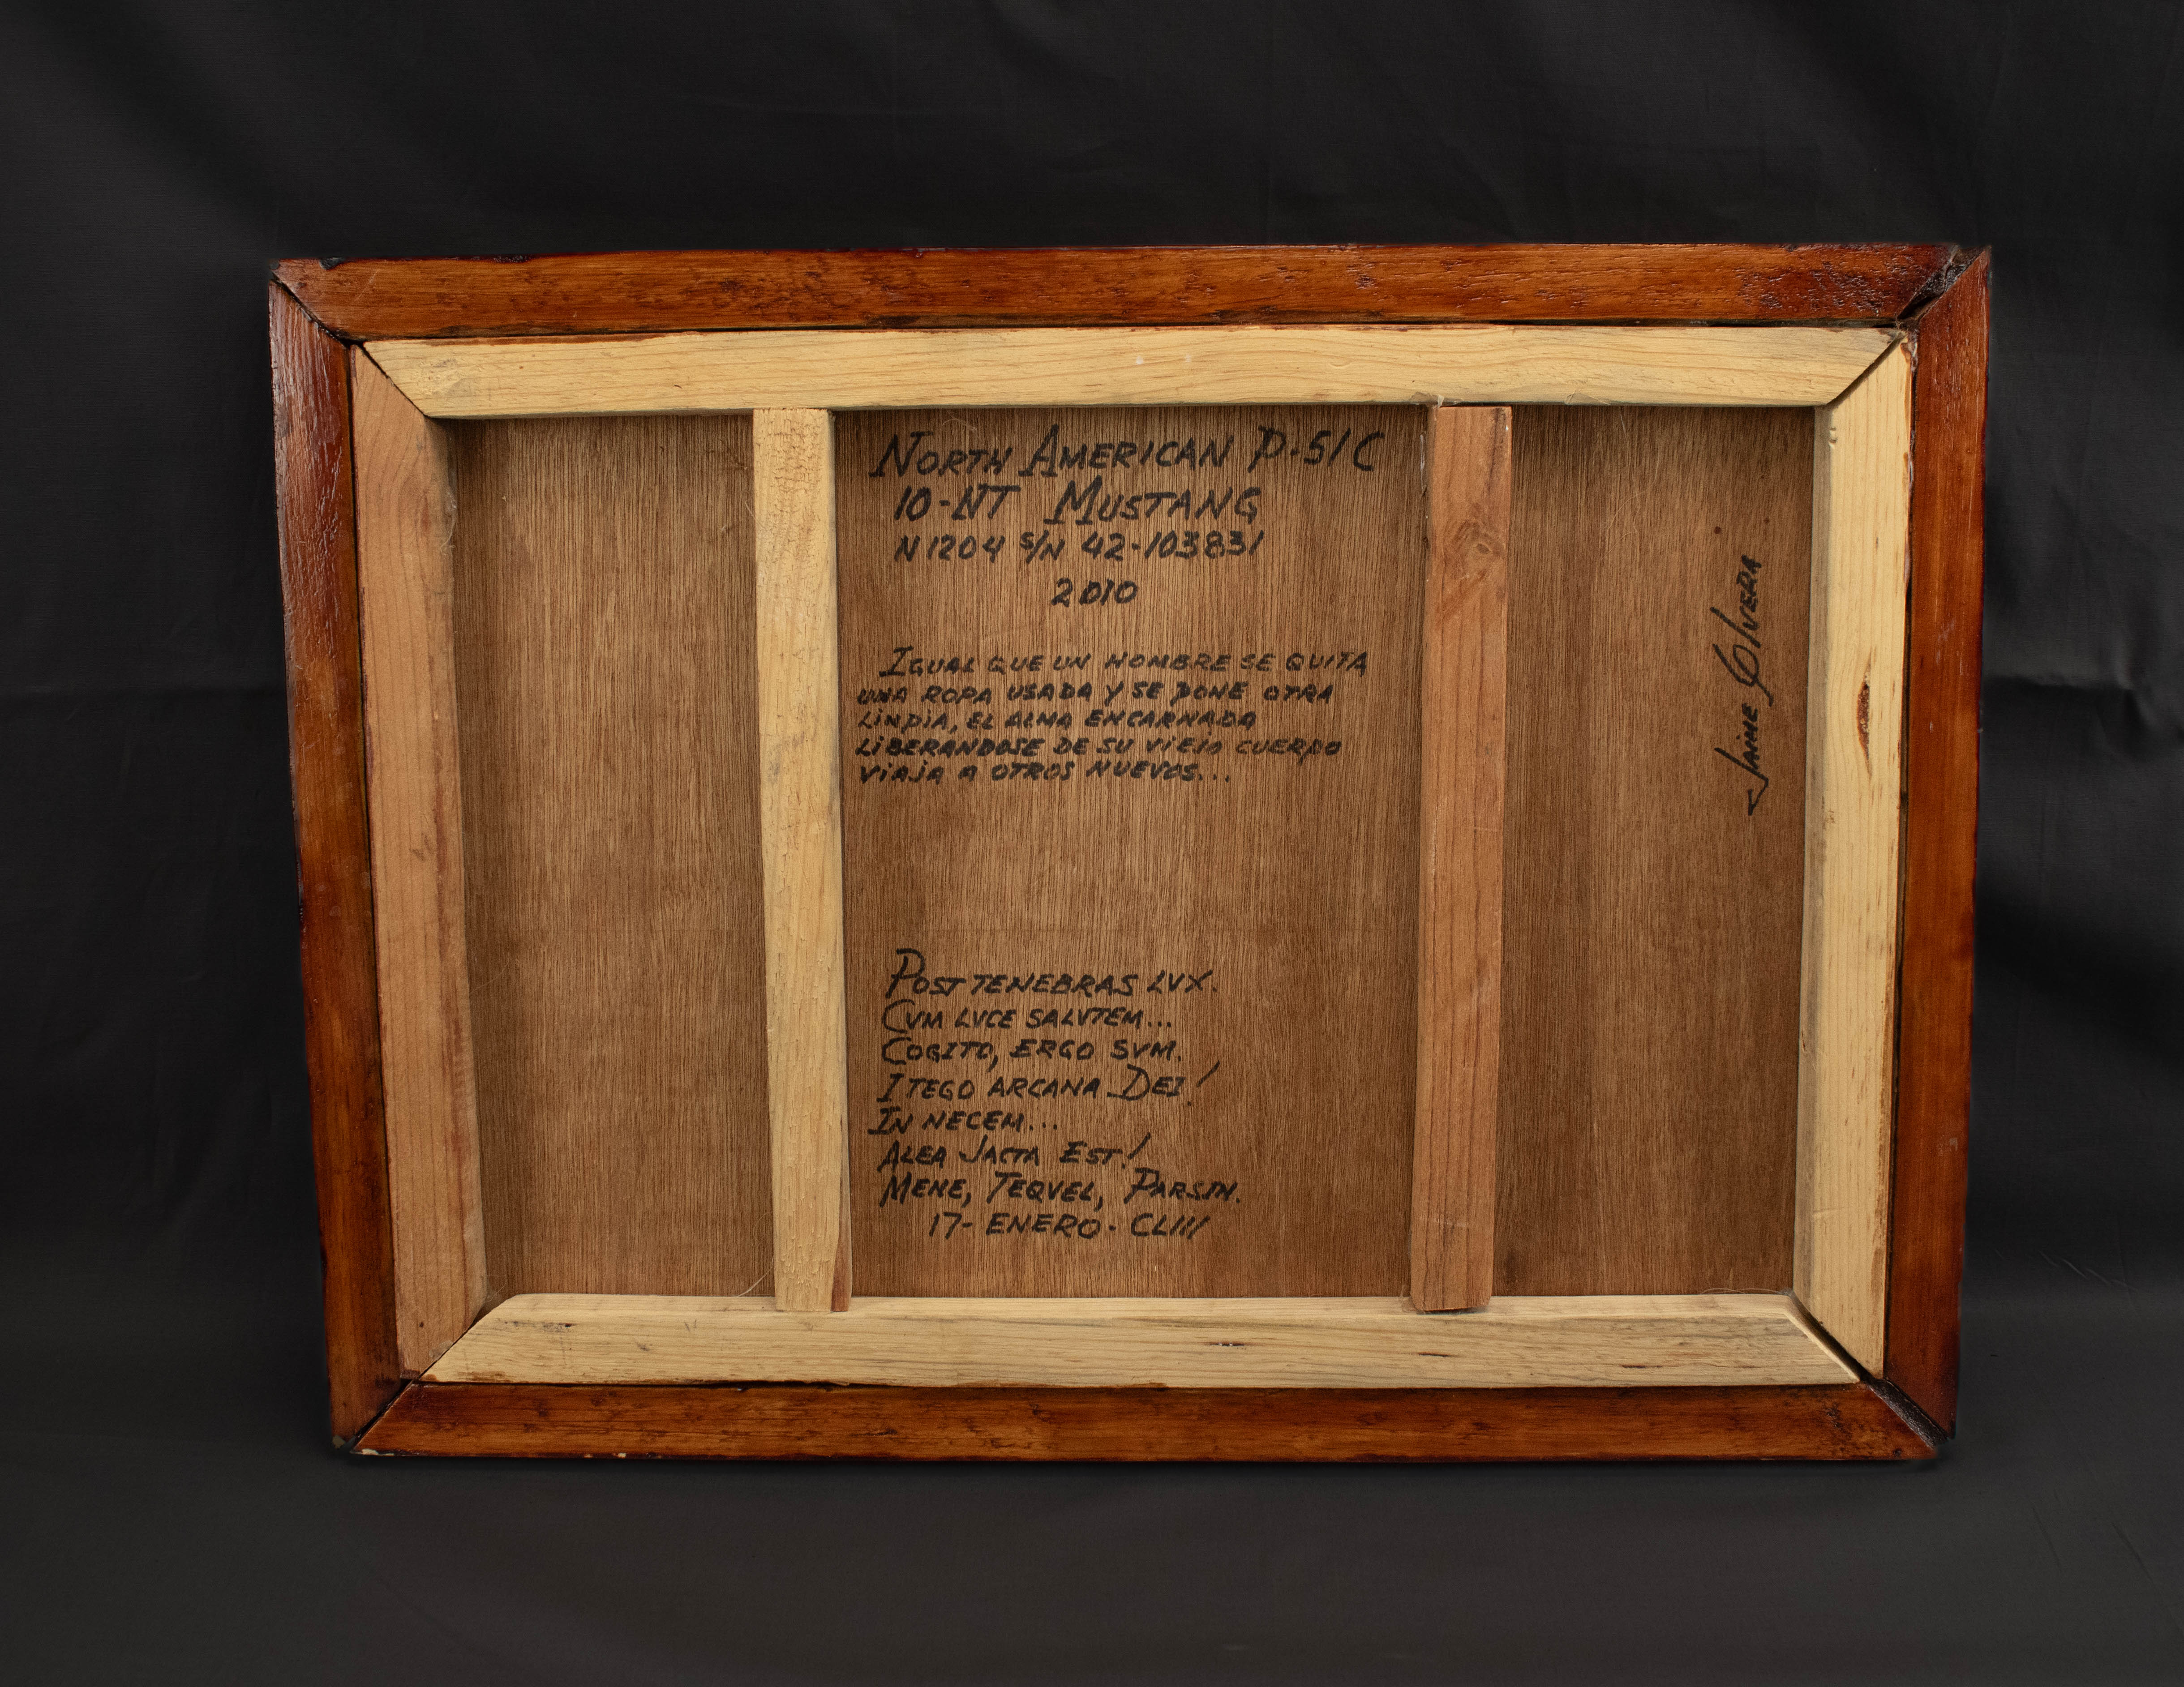 NORTH AMERICAN P-51C
10-NT MUSTANG
N1204 S/N 42-103831
2010
IGUAL QUE UN HOMBRE SE QUITA
UNA ROPA USADA Y SE PONE OTRA
LiNPiA, EL ALMA ENCARNADA
LiBERANDOSE DE SU ViEJO CUERPO
ViAJA A OTROS NUEVOS...
POST TENEBRAS LVX.
CVM LVCE SALVTEM...
COGITO, ERGO SVM.
I TEGO ARCANA DEI!
IN NECEM...
ALEA JACTA EST!
MENE, TEQVEL, PARSIN.
17-ENERO-CLIII
JAIME OLVERA